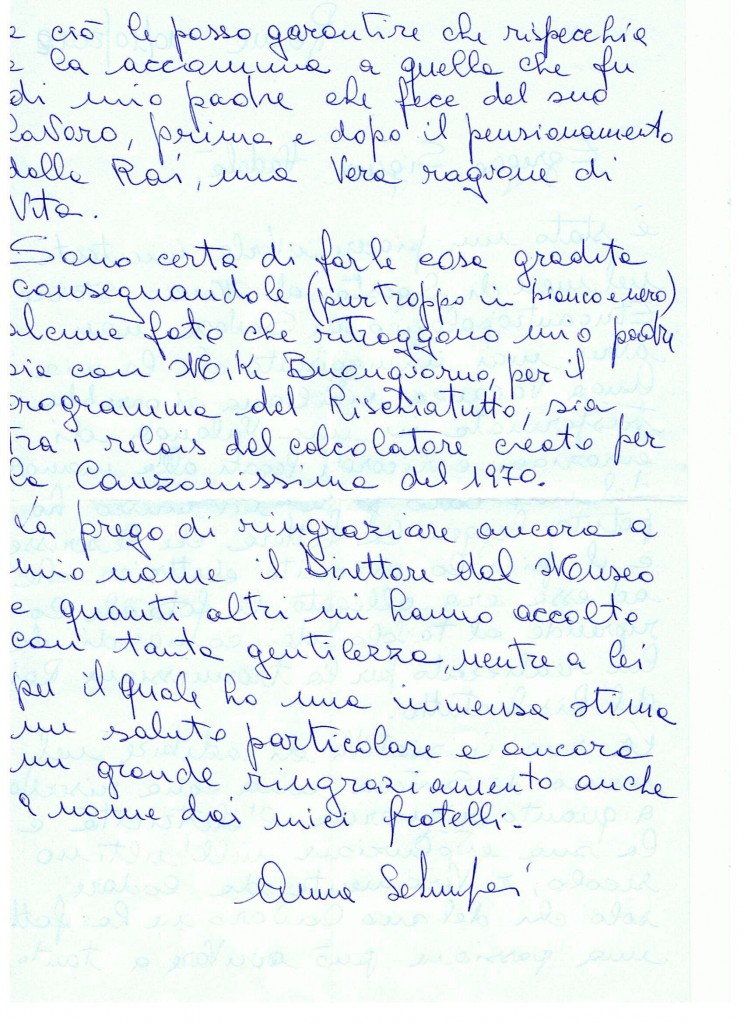 e ciò le posso garantire che rispecchia
e la accomuna a quella che fu
di mio padre che fece del suo
lavoro, prima e dopo il pensionamento
dalla Rai, una vera ragione di
vita.
Sono certa di farle cosa gradita
consegnandole (purtroppo in bianco e nero)
alcune foto che ritraggono mio padre
sia con Mike Buongiorno, per il
programma del Rischiatutto, sia
tra i relais del calcolatore creato per
la Canzonissima del 1970.
La prego di ringraziare ancora a
mio nome il Direttore del Museo
e quanti altri mi hanno accolto
con tanta gentilezza, mentre a lei
per il quale ho una immensa stima
un saluto particolare e ancora
un grande ringraziamento anche
a nome dei miei fratelli.
Anna